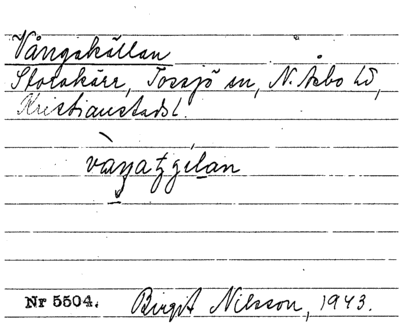 Vångakällan
Storakärr, Tossjö sn, N. Åsbo hd,
Kristianstads l.
Nr 5504. Birgit Nilsson, 1943.